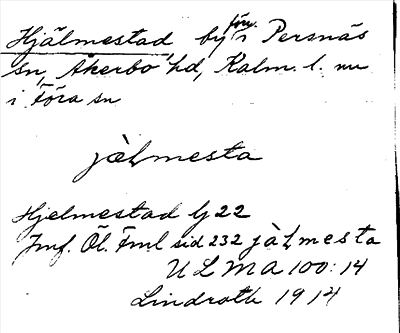 Hjälmestad by förr i Persnäs
sn, Åkerbo hd, Kalm. l. nu
i Föra sn
jàⱢmesta
Hjelmestad lj 22
Jmf. Öl. Fml sid 232 jàⱢmesta
ULMA 100:14
Lindroth 1914